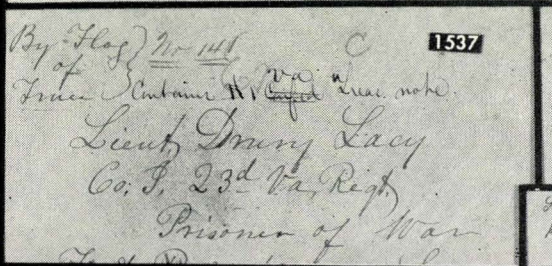 By Flag } No 141 C 1537
of
Truce } Contains $1, Va Treas. note.
Lieut, Drury Lacy
Co; I, 23d Va, Regt,
Prisoner of War